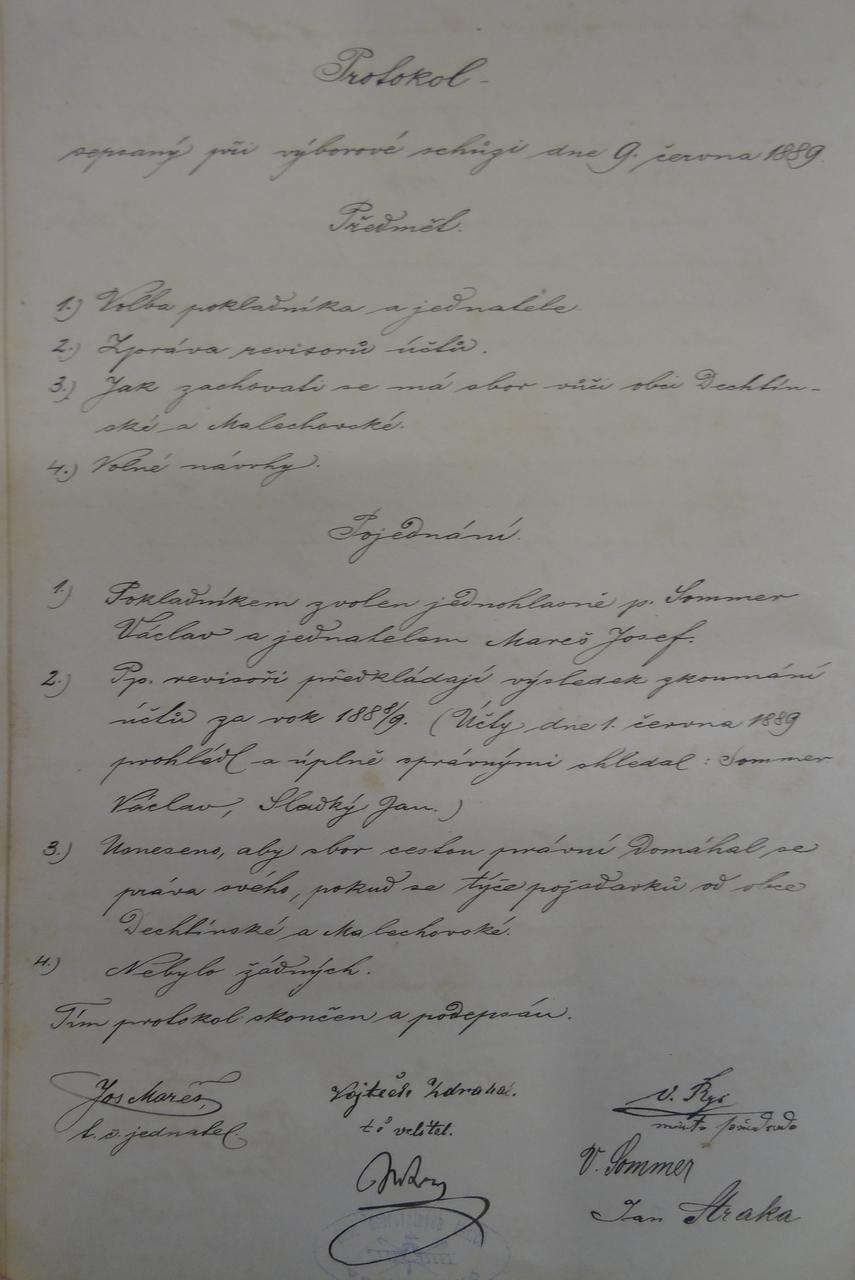 Protokol -
sepsaný při výborové schůzi dne 9. června 1889
Předmět.
1.) Volba pokladníka a jednatele.
2.) Zpráva revisorů účtů.
3.) Jak zachovati se má sbor vůči obci Dechtín-
ské a Malechovské.
4.) Volné návrhy.
Pojednání.
1.) Pokladníkem zvolen jednohlasně p. Sommer
Václav a jednatelem Mareš Josef.
2.) Pp. revisoři předkládají výsledek zkoumání
účtů za rok 1888/9. (Účty dne 1. června 1889
prohlédl a úplně správnými shledal: Sommer
Václav, Sladký Jan.)
3.) Usneseno, aby sbor cestou právní domáhal se
práva svého, pokud se týče pojadarků od obce
Dechtínské a Malechovské.
4.) Nebylo žádných.
Tím protokol skončen a podepsán.
Jos Mareš,
t. č. jednatel
Vojtěch Zdrahal.
t č velitel.
V. Rys
místo předsedo
V. Sommer
Jan Straka